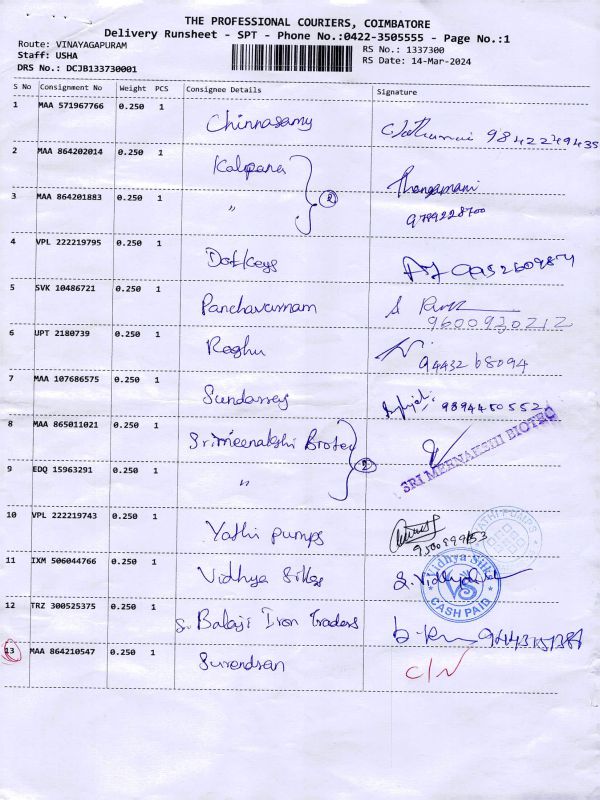 THE PROFESSIONAL COURIERS, COIMBATORE
Delivery Runsheet - SPT - Phone No.:0422-3505555 - Page No.:1
Route: VINAYAGAPURAM RS No.: 1337300
Staff: USHA RS Date: 14-Mar-2024
DRS No.: DCJB133730001
S No Consignment No Weight PCS Consignee Details Signature
1 MAA 571967766 0.250 1 Chinnasamy 9842249435
2 MAA 864202014 0.250 1 Kalpana Thangamani
3 MAA 864201883 0.250 1 " 2 9789228700
4 VPL 222219795 0.250 1 Dot/Keys
5 SVK 10486721 0.250 1 Panchavarnam 9600930212
6 UPT 2180739 0.250 1 Raghu 9443268094
7 MAA 107686575 0.250 1 9894450552
8 MAA 865011021 0.250 1 Sri meenakshi Biotec
SRI MEENAKSHI BIOTEC
9 EDQ 15963291 0.250 1 " 2
10 VPL 222219743 0.250 1 Yathi pumps
YATHI PUMPS
11 IXM 506044766 0.250 1 Vidhya silks
Vidhya Silks
VS
CASH PAID
12 TRZ 300525375 0.250 1 S. Balaji Iron Traders
13 MAA 864210547 0.250 1 Surendran C/N